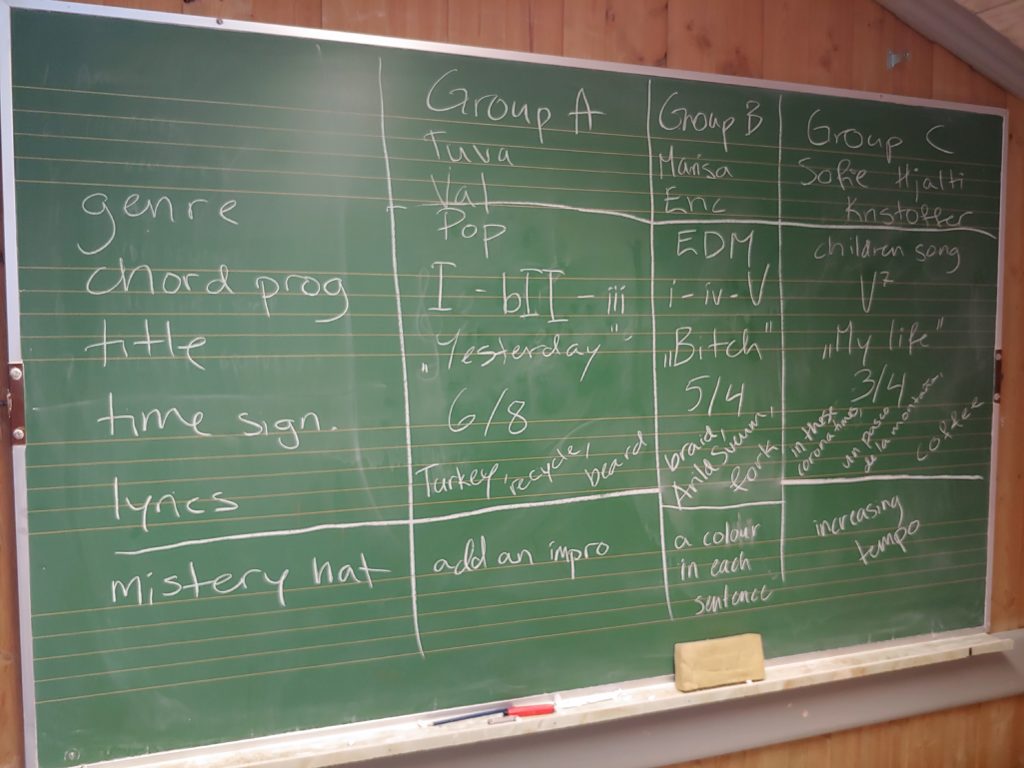 Group A Group B Group C
Tuva Marisa Sofie Hjalti
Val Eric Kristoffer
genre Pop EDM children song
chord prog I - bII - iii i - iv - V V7
title „Yesterday" „Bitch" „My life"
time sign. 6/8 5/4 3/4
lyrics Turkey, recycle, beard braid, fork in that corona time, un passo dalia coffee
mistery hat add an impro a colour in each sentence increasing tempo